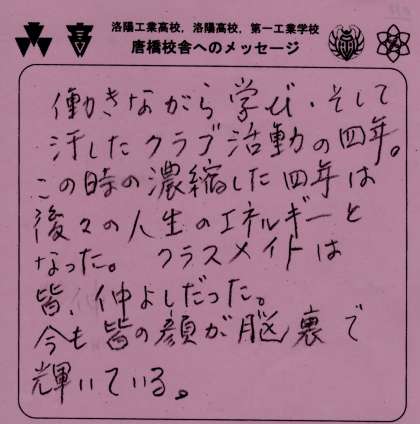 洛陽工業高校，洛陽高校，第一工業学校
唐橋校舎へのメッセージ
働きながら学び・そして
汗したクラブ活動の四年。
この時の濃縮した四年は
後々の人生のエネルギーと
なった。 クラスメイトは
皆、仲よしだった。
今も皆の顔が脳裏で
輝いている。